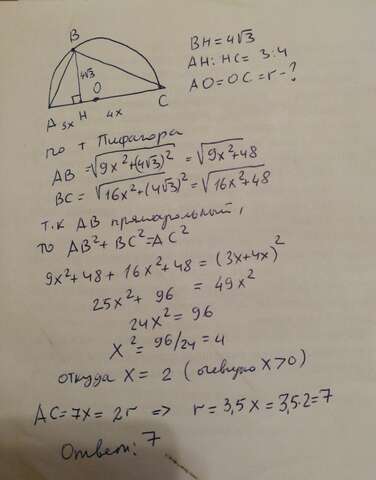 B
4√3
O
A 3x H 4x C
BH=4√3
AH:HC= 3:4
AO=OC=r-?
по т Пифагора
AB=√9x²+(4√3)² = √9x²+48
BC= √16x²+(4√3)² = √16x²+48
т.к AB прямоугольный,
то AB²+BC²=AC²
9x²+48+16x²+48 = (3x+4x)²
25x²+ 96 = 49x²
24x² = 96
x²= 96/24 = 4
откуда x= 2 (очевидно x>0)
AC=7x=2r => r=3,5x=3,5·2=7
Ответ: 7